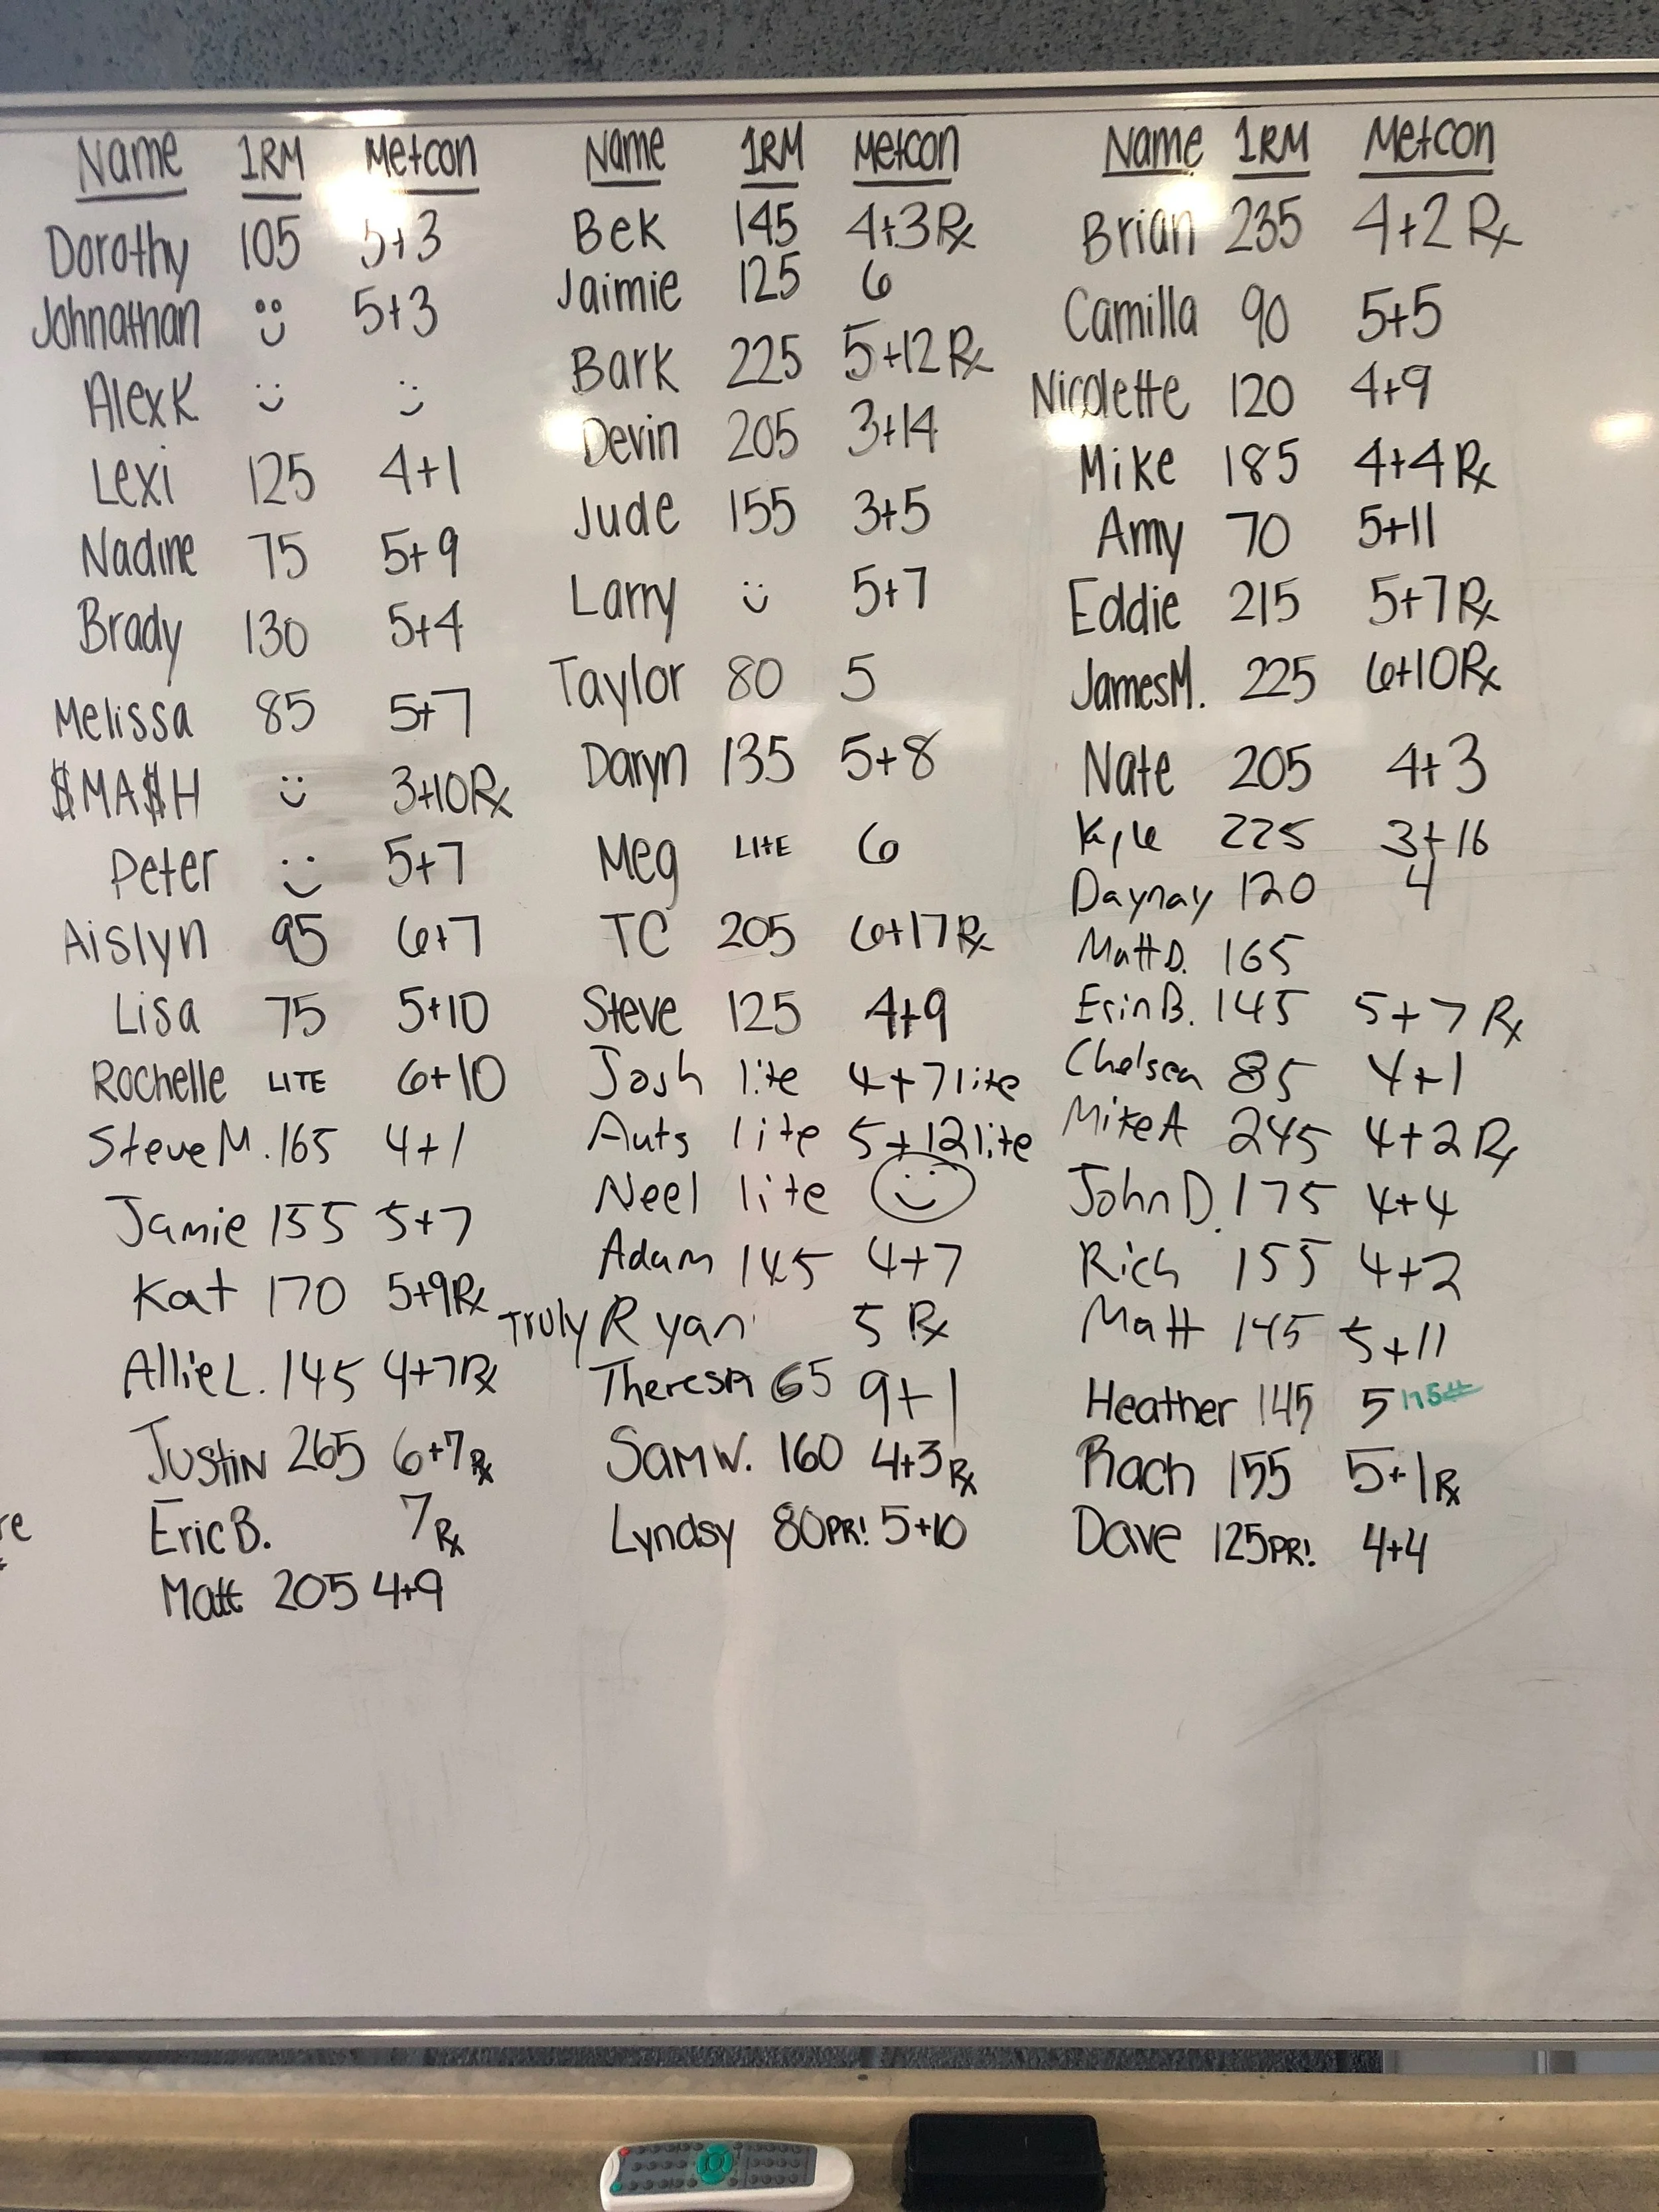 Name 1RM Metcon
Dorothy 105 5+3
Johnathan 5+3
Alex K
Lexi 125 4+1
Nadine 75 5+9
Brady 130 5+4
Melissa 85 5+7
$MA$H 3+10Rx
Peter 5+7
Aislyn 95 6+7
Lisa 75 5+10
Rochelle LITE 6+10
Steve M. 165 4+1
Jamie 155 5+7
Kat 170 5+9Rx
Allie L. 145 4+7Rx
Justin 265 6+7Rx
Eric B. 7Rx
Matt 205 4+9
Name 1RM Metcon
Bek 145 4+3Rx
Jaimie 125 6
Bark 225 5+12Rx
Devin 205 3+14
Jude 155 3+5
Larry 5+7
Taylor 80 5
Daryn 135 5+8
Meg LITE 6
TC 205 6+17Rx
Steve 125 4+9
Josh lite 4+7lite
Auts lite 5+12lite
Neel lite
Adam 145 4+7
Truly Ryan 5 Rx
Theresa 65 9+1
Sam W. 160 4+3Rx
Lyndsy 80PR! 5+10
Name 1RM Metcon
Brian 235 4+2 Rx
Camilla 90 5+5
Nicolette 120 4+9
Mike 185 4+4Rx
Amy 70 5+11
Eddie 215 5+7Rx
James M. 225 6+10Rx
Nate 205 4+3
Kyle 225 3+16
Daynay 120 4
Matt D. 165
Erin B. 145 5+7 Rx
Chelsea 85 4+1
Mike A 245 4+2 Rx
John D. 175 4+4
Rich 155 4+2
Matt 145 5+11
Heather 145 5
Rach 155 5+1Rx
Dave 125PR! 4+4